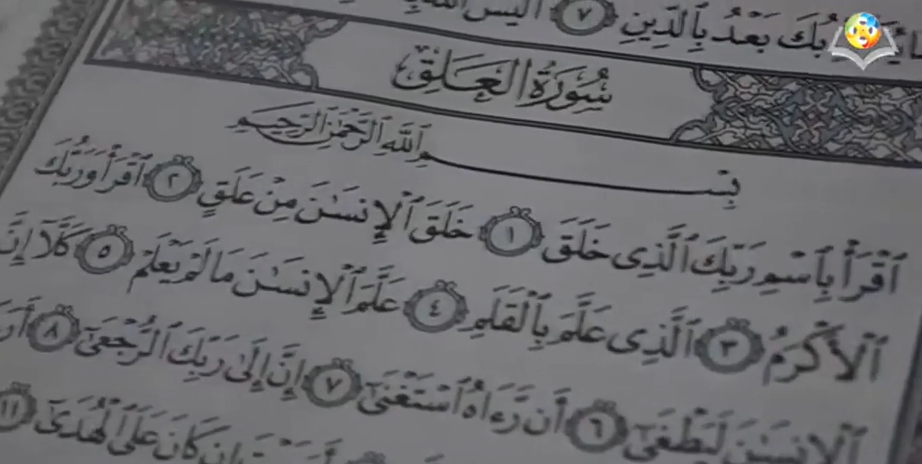 بُكَ بَعْدُ بِٱلدِّينِ ٧ أَلَيْسَ ٱللَّهُ
سُورَةُ العَلَقِ
بِسْمِ ٱللَّهِ ٱلرَّحْمَٰنِ ٱلرَّحِيمِ
ٱقْرَأْ بِٱسْمِ رَبِّكَ ٱلَّذِى خَلَقَ ١ خَلَقَ ٱلْإِنسَٰنَ مِنْ عَلَقٍ ٢ ٱقْرَأْ وَرَبُّكَ
ٱلْأَكْرَمُ ٣ ٱلَّذِى عَلَّمَ بِٱلْقَلَمِ ٤ عَلَّمَ ٱلْإِنسَٰنَ مَا لَمْ يَعْلَمْ ٥ كَلَّآ إِنَّ
ٱلْإِنسَٰنَ لَيَطْغَىٰٓ ٦ أَن رَّءَاهُ ٱسْتَغْنَىٰٓ ٧ إِنَّ إِلَىٰ رَبِّكَ ٱلرُّجْعَىٰٓ ٨
إِن كَانَ عَلَى ٱلْهُدَىٰٓ ١١